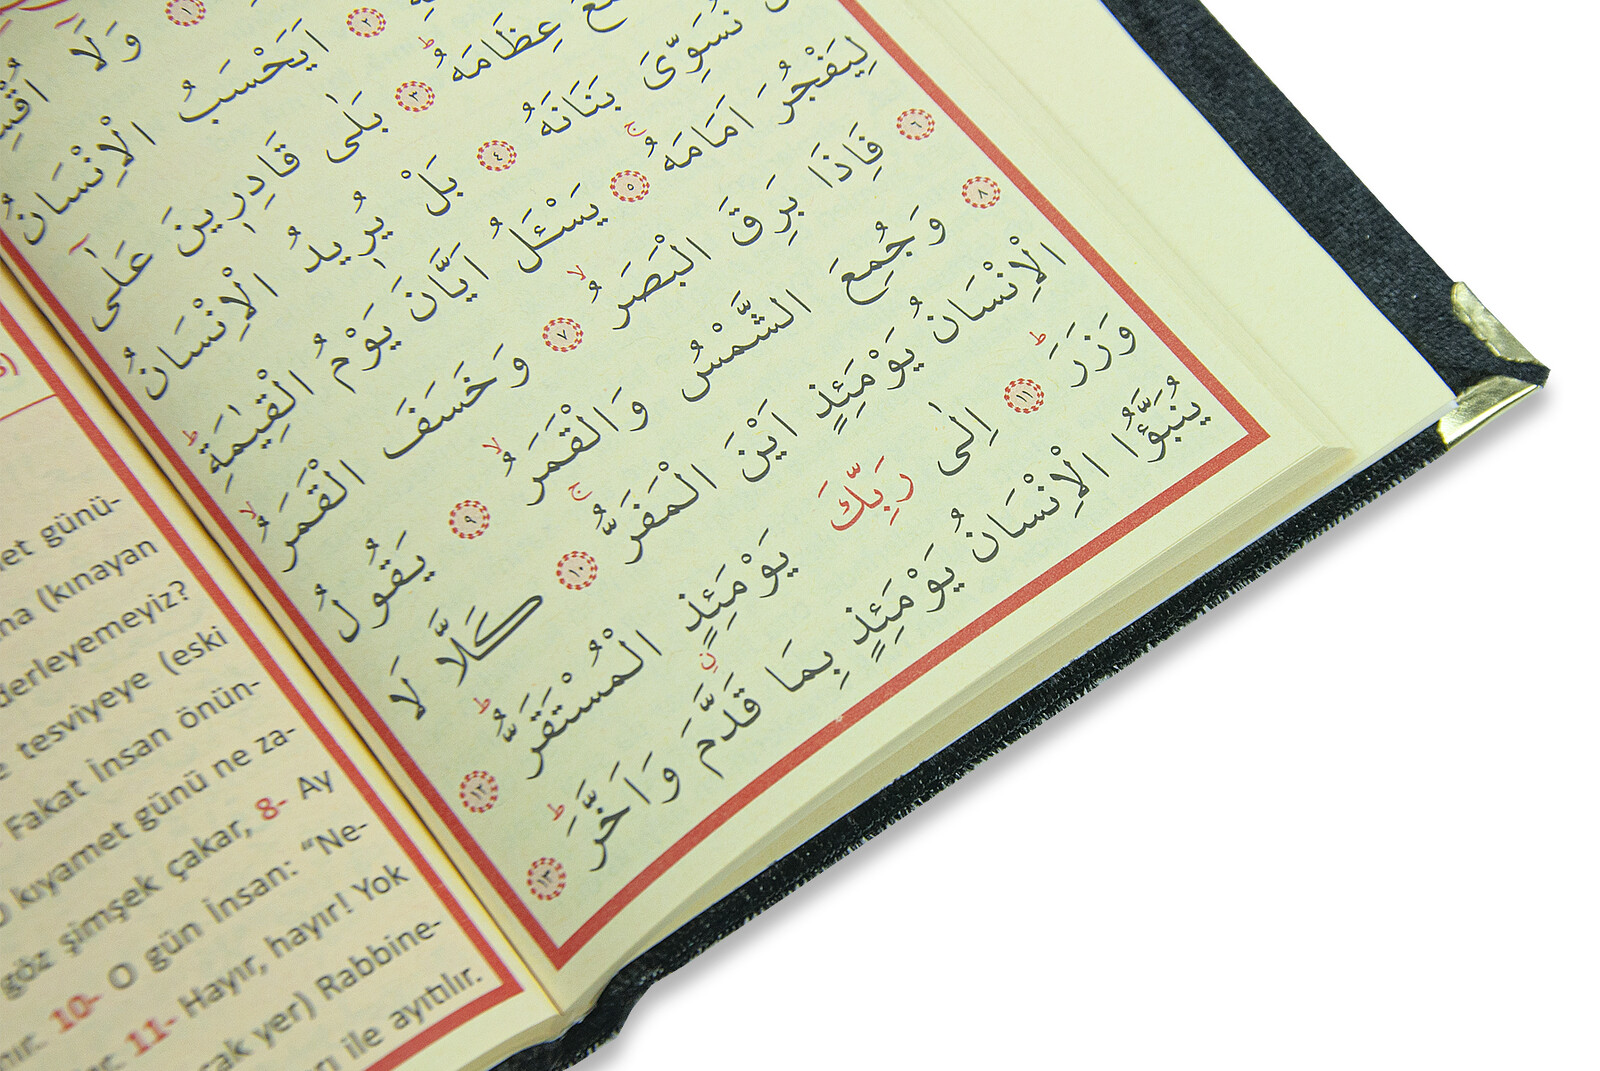 ١ وَلَٓا
٢ اَيَحْسَبُ الْاِنْسَانُ
عِظَامَهُ ٣ بَلٰى قَادِرِينَ عَلٰٓى
نُسَوِّىَ بَنَانَهُ ٤ بَلْ يُرِيدُ الْاِنْسَانُ
لِيَفْجُرَ اَمَامَهُ ٥ يَسْـَٔلُ اَيَّانَ يَوْمُ الْقِيٰمَةِ
٦ فَاِذَا بَرِقَ الْبَصَرُ ٧ وَخَسَفَ الْقَمَرُ
٨ وَجُمِعَ الشَّمْسُ وَالْقَمَرُ ٩ يَقُولُ
الْاِنْسَانُ يَوْمَئِذٍ اَيْنَ الْمَفَرُّ ١٠ كَلَّا لَا
وَزَرَ ١١ اِلٰى رَبِّكَ يَوْمَئِذٍ الْمُسْتَقَرُّ ١٢
يُنَبَّؤُا الْاِنْسَانُ يَوْمَئِذٍ بِمَا قَدَّمَ وَاَخَّرَ ١٣
günü-
(kınayan
derleyemeyiz?
tesviyeye (eski
Fakat İnsan önün-
kıyamet günü ne za-
göz şimşek çakar, 8- Ay
10- O gün İnsan: “Ne-
11- Hayır, hayır! Yok
yer) Rabbine-
ile ayıtılır.